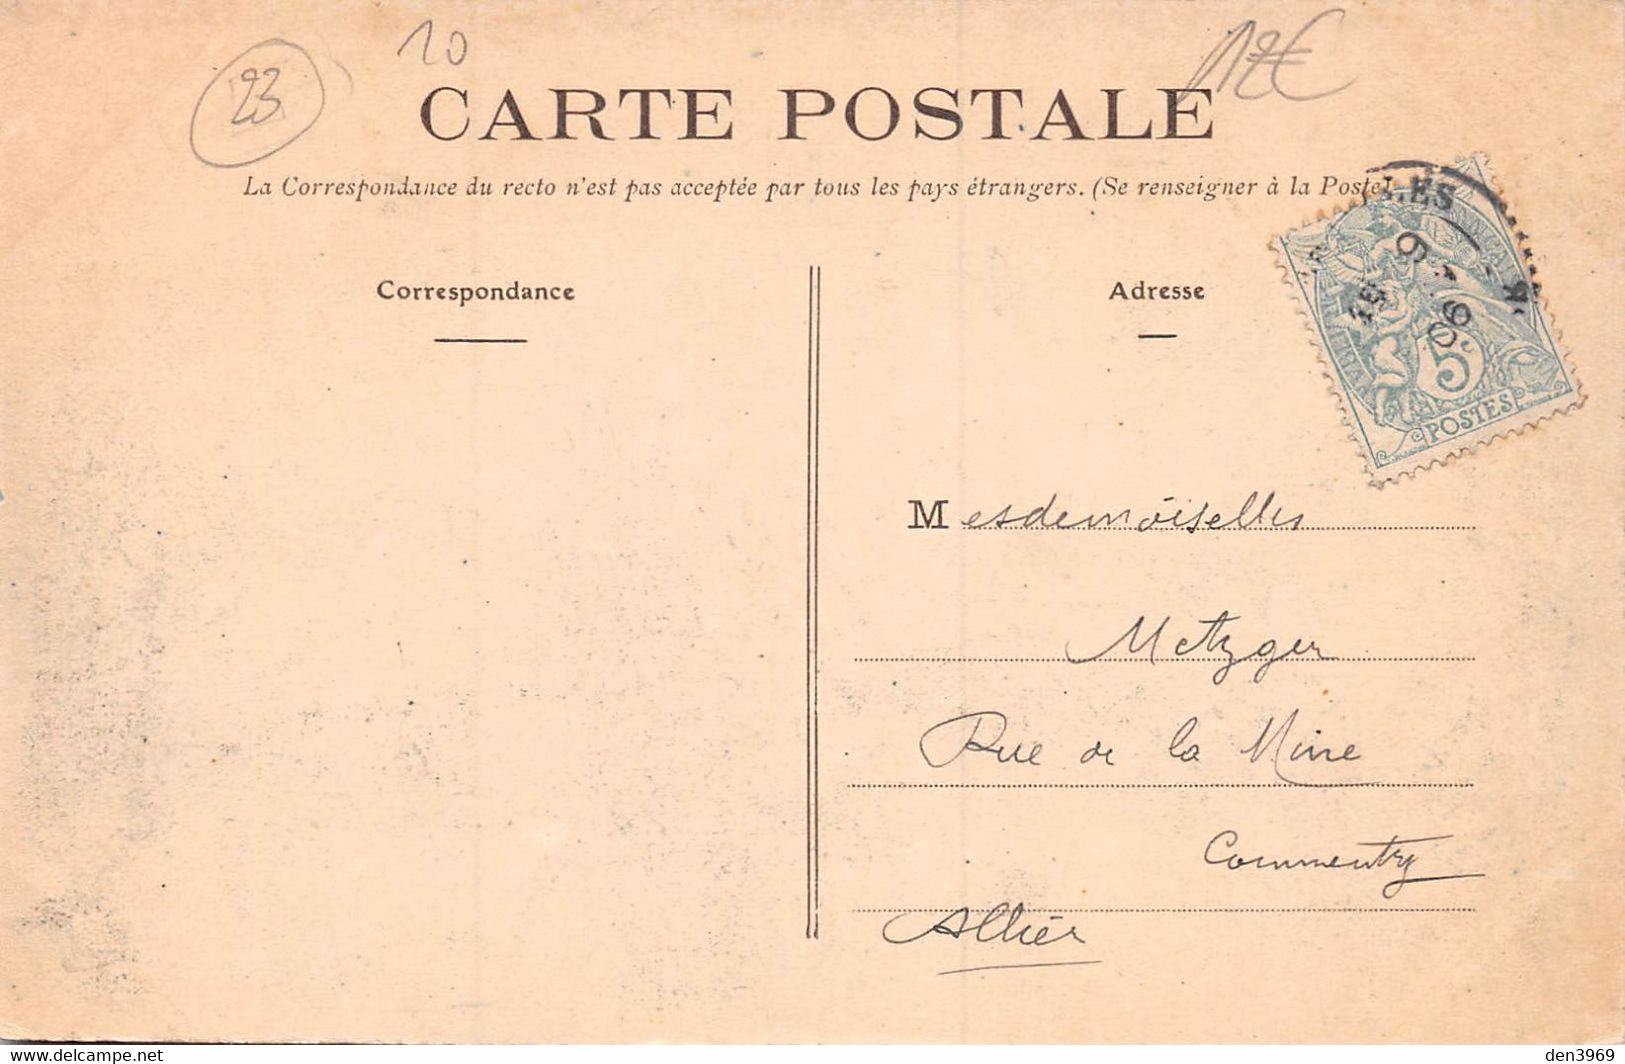 23
10
12€
CARTE POSTALE
La Correspondance du recto n'est pas acceptée par tous les pays étrangers. (Se renseigner à la Poste).
Correspondance
Adresse
5
POSTES
06
Mesdemoiselles
Metzger
Rue de la Mine
Commentry
Allier
www.delcampe.net
den3969